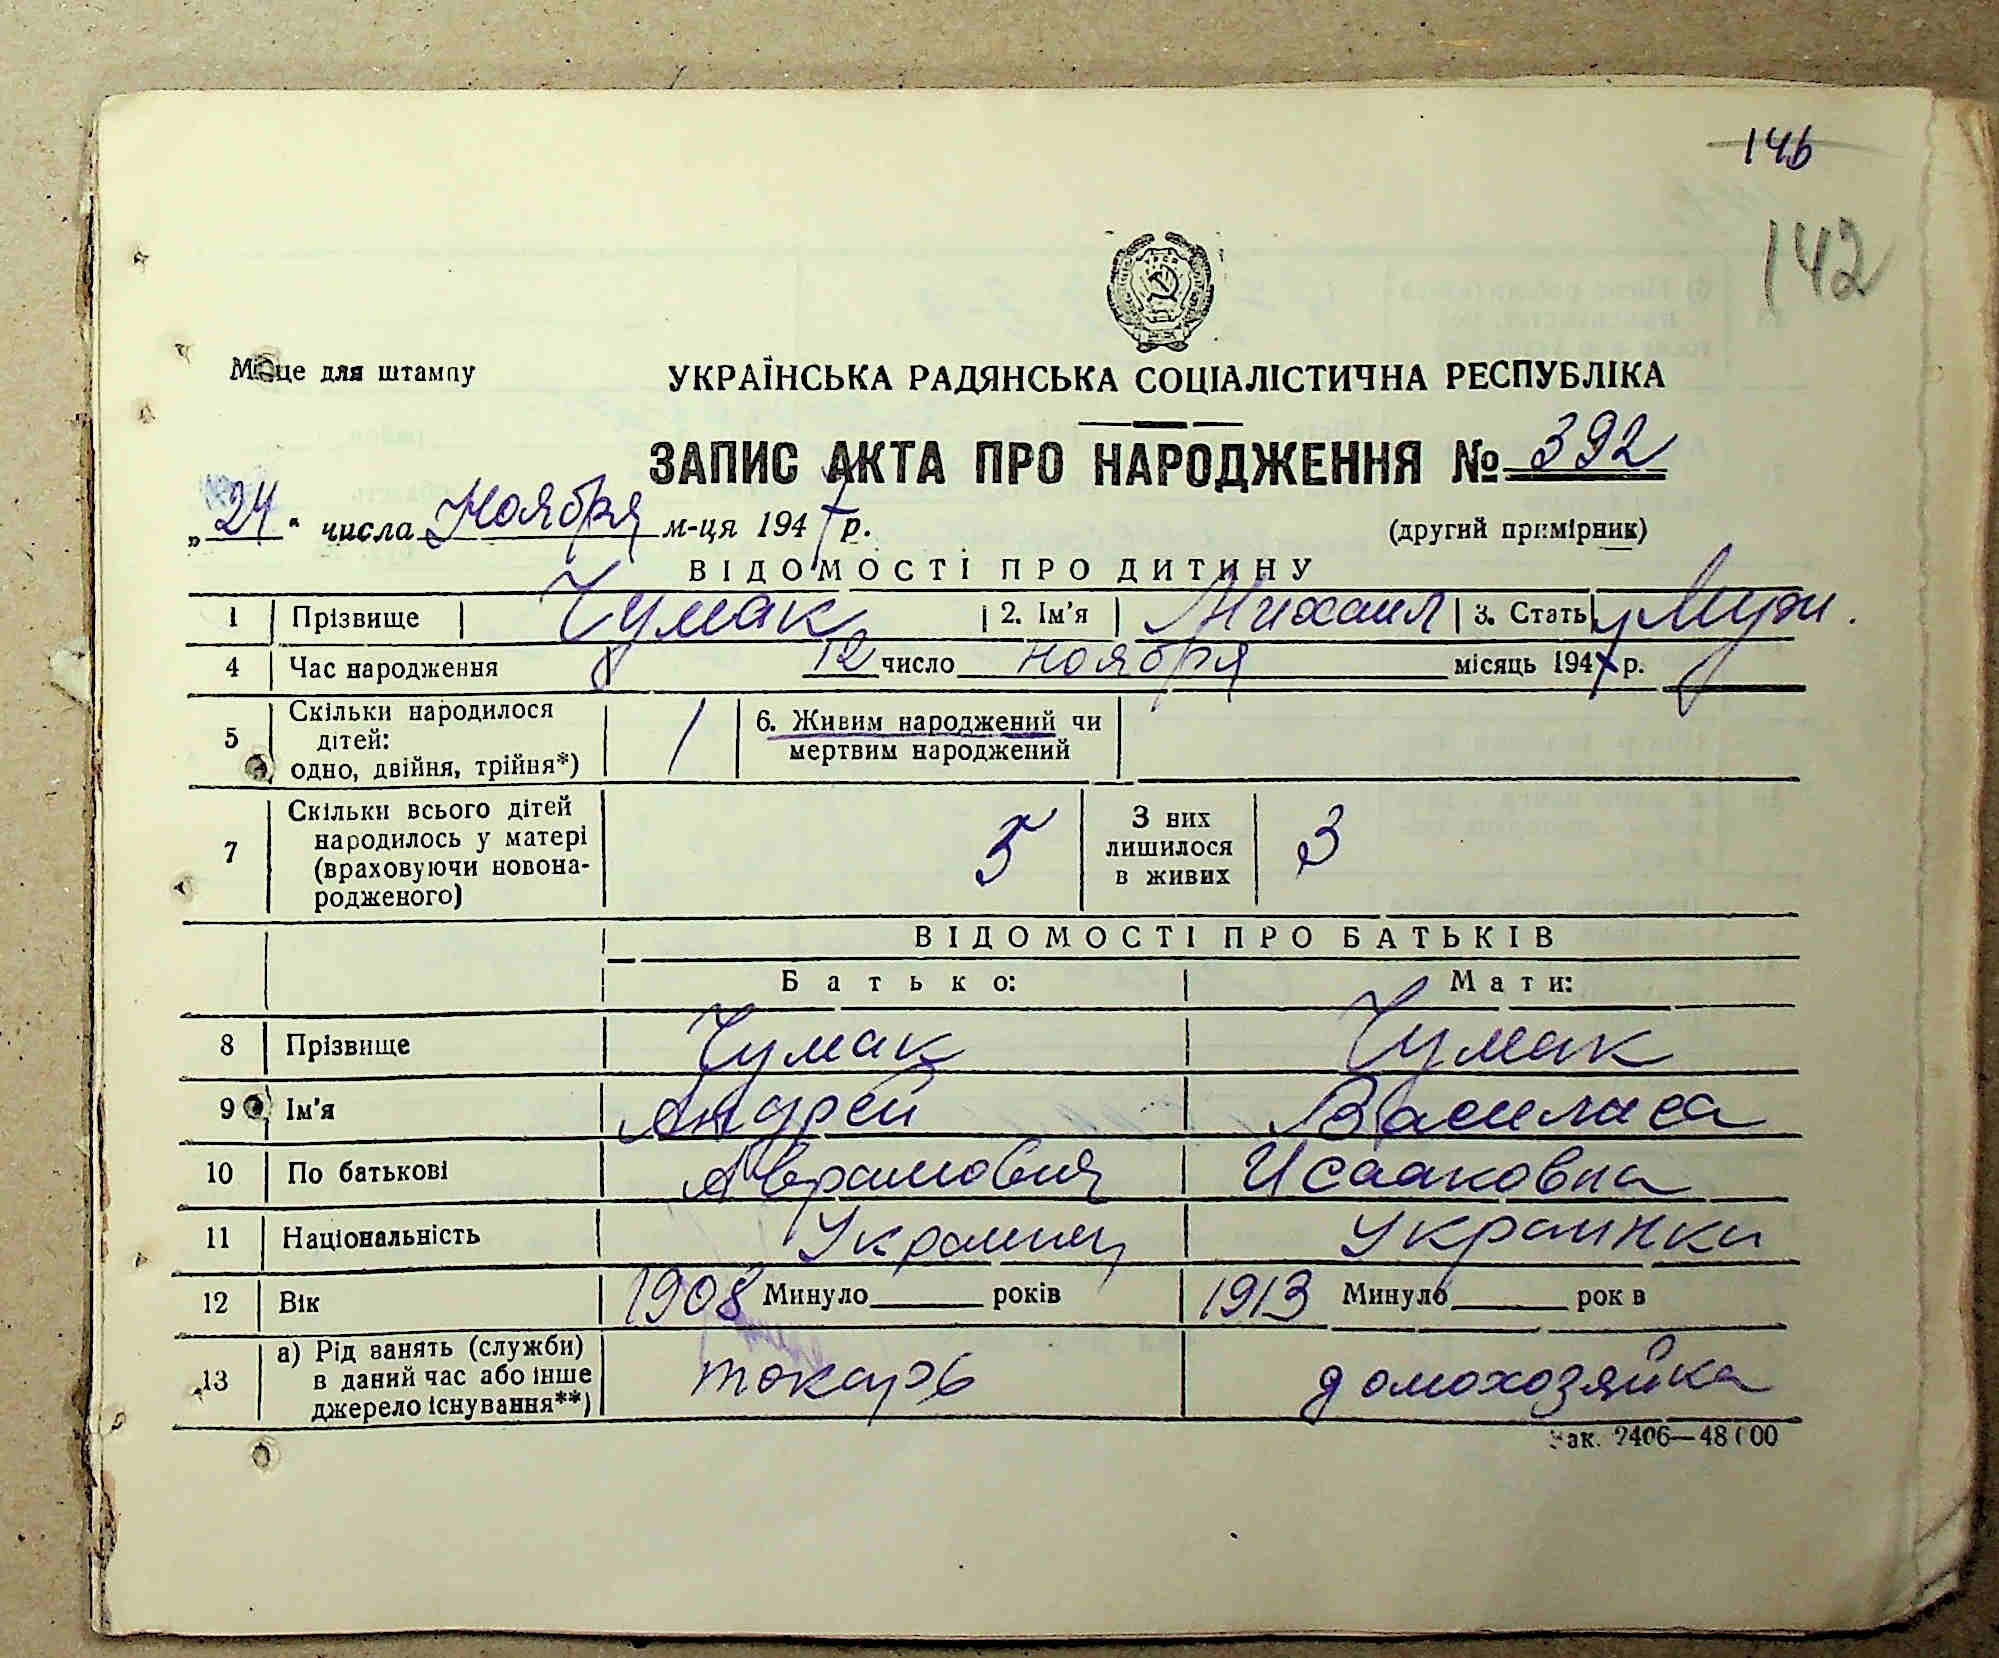 146
142
Місце для штампу
УКРАЇНСЬКА РАДЯНСЬКА СОЦІАЛІСТИЧНА РЕСПУБЛІКА
ЗАПИС АКТА ПРО НАРОДЖЕННЯ № 392
„24" числа Ноября м-ця 1947 р. (другий примірник)
ВІДОМОСТІ ПРО ДИТИНУ
1 Прізвище Чумак 2. Ім'я Михаил 3. Стать Муж.
4 Час народження 12 число ноября місяць 1947 р.
5 Скільки народилося
дітей:
одно, двійня, трійня*) 1
6. Живим народжений чи
мертвим народжений
7 Скільки всього дітей
народилось у матері
(враховуючи новона-
родженого) 5
З них
лишилося
в живих 3
ВІДОМОСТІ ПРО БАТЬКІВ
Батько: Мати:
8 Прізвище Чумак Чумак
9 Ім'я Андрей Василиса
10 По батькові Аврамович Исааковна
11 Національність Украинец Украинка
12 Вік 1908 Минуло років 1913 Минуло рок в
13 а) Рід занять (служби)
в даний час або інше
джерело існування**) токарь домохозяйка
Зак. 2406—48000